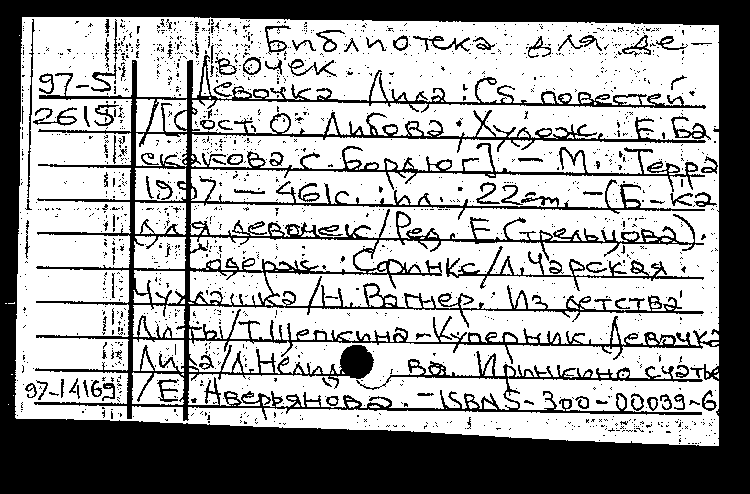 Библиотека для де-
вочек.
97-5 Девочка Лида : Сб. повестей.
2615 /[Сост. О. Либова ; Худож. : Е. Ба-
скакова, С. Бордюг]. — М. : Терра
1997. — 461с. : ил. ; 22cm. — (Б-ка
для девочек/Ред. Е. Стрельцова).
Содерж. : Сфинкс/Л. Чарская.
Чухлашка/Н. Вагнер. Из детства
Литы/Т. Щепкина-Куперник. Девочка
Лида/Л. Нелид ва. Иринкино счастье
97-14169 /Е. Аверьянова. — ISBN 5-300-00099-6